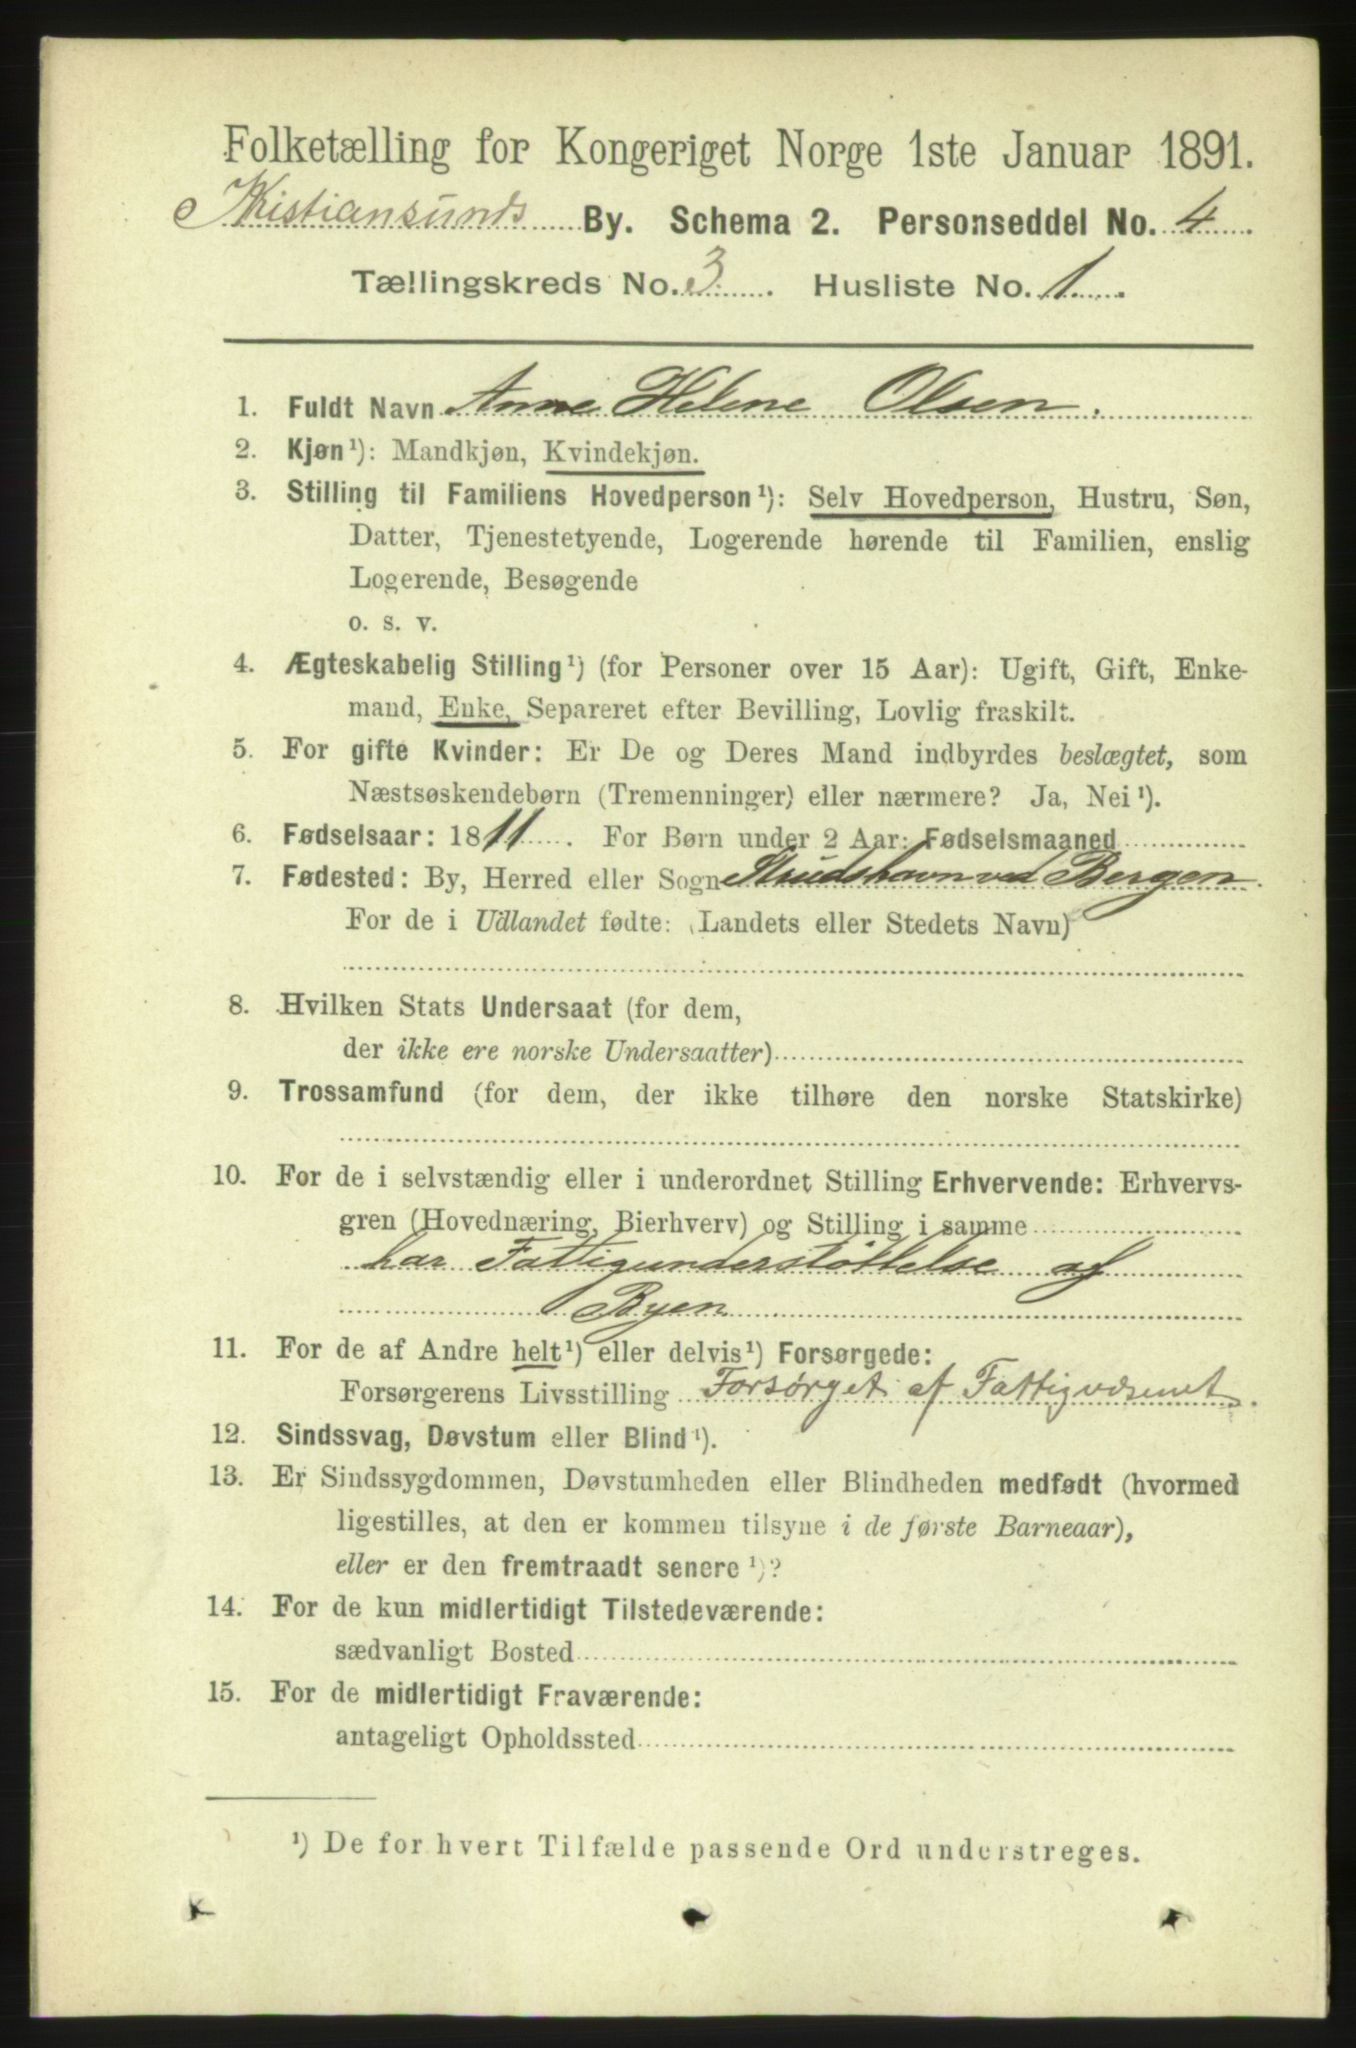 Folketælling for Kongeriget Norge 1ste Januar 1891.
Kristiansunds By. Schema 2. Personseddel No. 4
Tællingskreds No. 3. Husliste No. 1
1. Fuldt Navn Anne Helene Olsen.
2. Kjøn¹): Mandkjøn, Kvindekjøn.
3. Stilling til Familiens Hovedperson¹): Selv Hovedperson, Hustru, Søn,
Datter, Tjenestetyende, Logerende hørende til Familien, enslig
Logerende, Besøgende
o. s. v.
4. Ægteskabelig Stilling¹) (for Personer over 15 Aar): Ugift, Gift, Enke-
mand, Enke, Separeret efter Bevilling, Lovlig fraskilt.
5. For gifte Kvinder: Er De og Deres Mand indbyrdes beslægtet, som
Næstsøskendebørn (Tremenninger) eller nærmere? Ja, Nei¹).
6. Fødselsaar: 1811. For Børn under 2 Aar: Fødselsmaaned
7. Fødested: By, Herred eller Sogn Strudshavn ved Bergen.
For de i Udlandet fødte: (Landets eller Stedets Navn)
8. Hvilken Stats Undersaat (for dem,
der ikke ere norske Undersaatter)
9. Trossamfund (for dem, der ikke tilhøre den norske Statskirke)
10. For de i selvstændig eller i underordnet Stilling Erhvervende: Erhvervs-
gren (Hovednæring, Bierhverv) og Stilling i samme
har Fattigunderstøttelse af
Byen
11. For de af Andre helt¹) eller delvis¹) Forsørgede:
Forsørgerens Livsstilling Forsørget af Fattigvæsenet.
12. Sindssvag, Døvstum eller Blind¹).
13. Er Sindssygdommen, Døvstumheden eller Blindheden medfødt (hvormed
ligestilles, at den er kommen tilsyne i de første Barneaar),
eller er den fremtraadt senere¹)?
14. For de kun midlertidigt Tilstedeværende:
sædvanligt Bosted
15. For de midlertidigt Fraværende:
antageligt Opholdssted
¹) De for hvert Tilfælde passende Ord understreges.